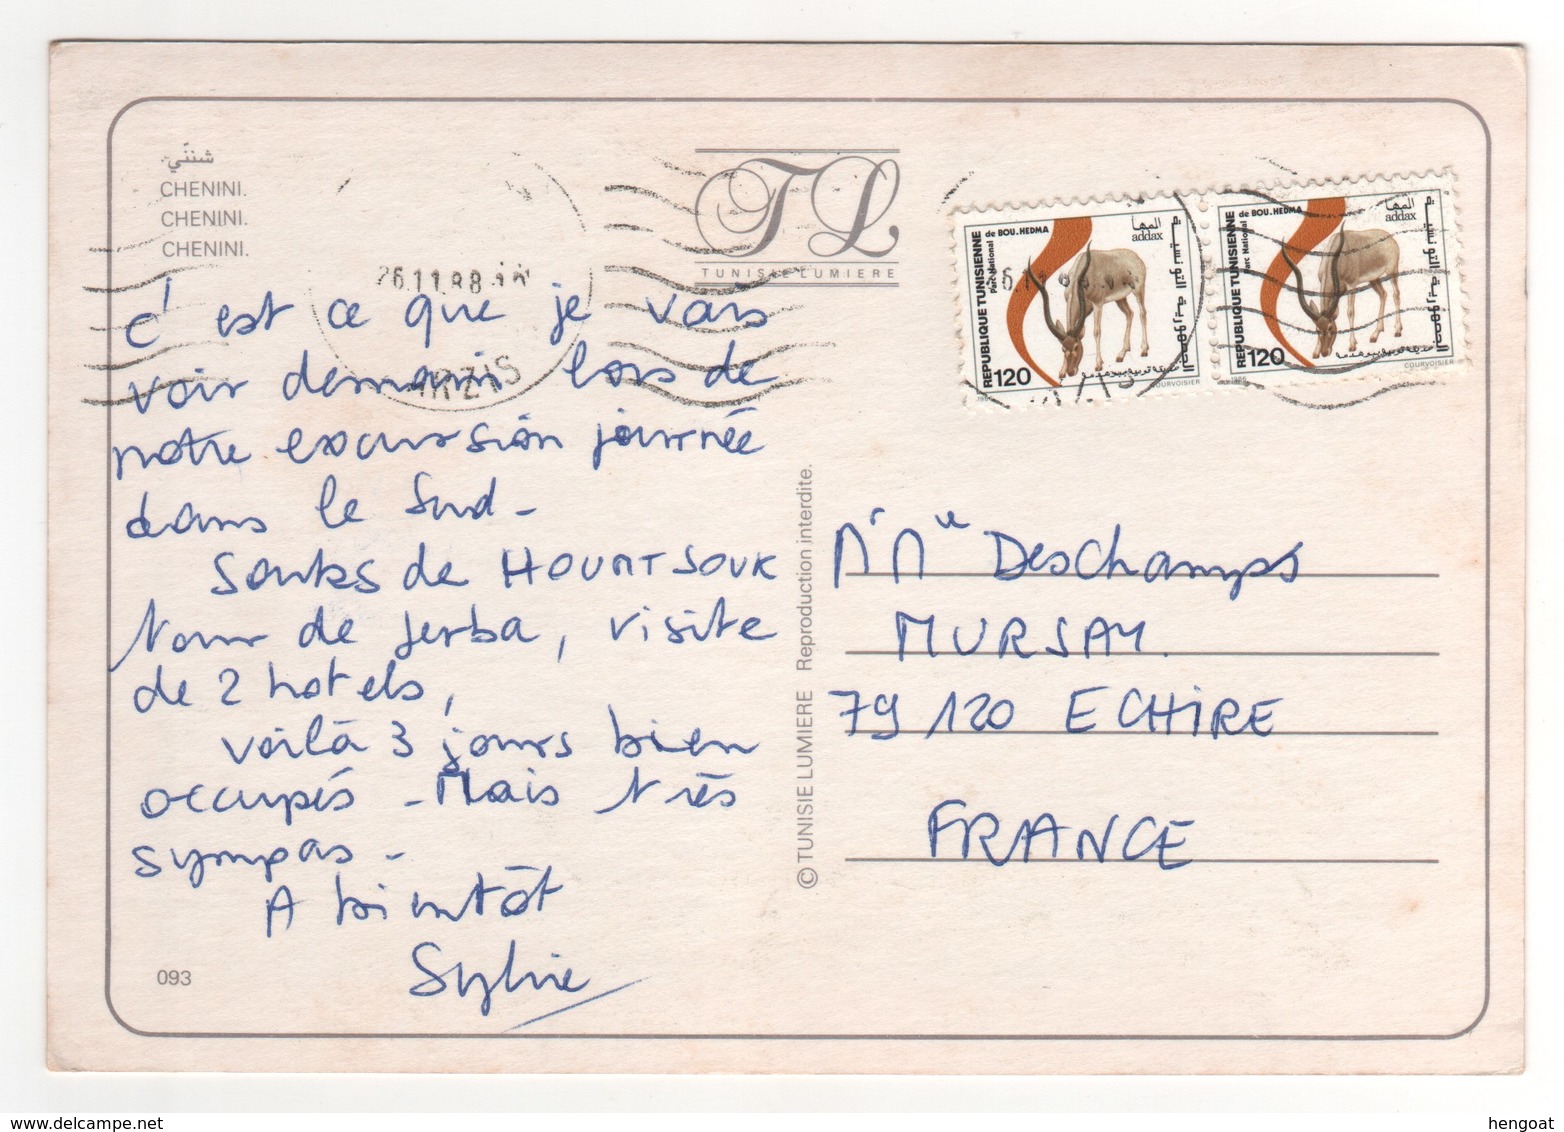 شننّي.
CHENINI.
CHENINI.
CHENINI.
26.11.88
ARZIS
TL
TUNISIE LUMIERE
REPUBLIQUE TUNISIENNE
Parc National de BOU.HEDMA
المها
addax
الجمهورية التونسية
120
COURVOISIER
REPUBLIQUE TUNISIENNE
Parc National de BOU.HEDMA
المها
addax
الجمهورية التونسية
120
COURVOISIER
C'est ce que je vais
voir demain lors de
notre excursion journée
dans le Sud -
Souks de HOUMT SOUK
Tour de Jerba, visite
de 2 hotels,
voilà 3 jours bien
occupés - Mais très
sympas -
A bientôt
Sylvie
093
© TUNISIE LUMIERE Reproduction interdite.
Mr Me Deschamps
MURSAY.
79120 ECHIRE
FRANCE
hengoat